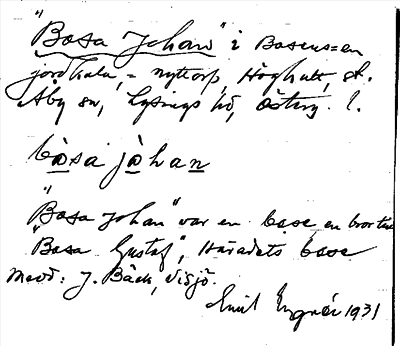 "Basa Johan" i Basens=en
jordkula, = nyttorp, Höghult, St.
Åby sn, Lysings hd, Österg. l.
bàsa jòhan
"Basa Johan" var en base, en bror till
"Basa Gustaf", Häradets base
Medd: J. Bäck, Visjö.
Emil 1931